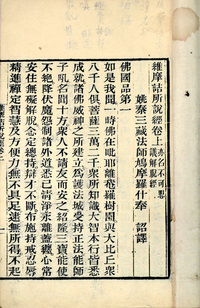 維摩詰所說經卷上亦名不可思
議解脫經
姚秦三藏法師鳩摩羅什奉 詔譯
佛國品第一
如是我聞一時佛在毗耶離菴羅樹園與大比丘眾
八千人俱菩薩三萬二千眾所知識大智本行皆悉
成就諸佛威神之所建立為護法城受持正法能師
子吼名聞十方眾人不請友而安之紹隆三寶能使
不絕降伏魔怨制諸外道悉已清淨永離蓋纏心常
安住無礙解脫念定總持辯才不斷布施持戒忍辱
精進禪定智慧及方便力無不具足逮無所得不起